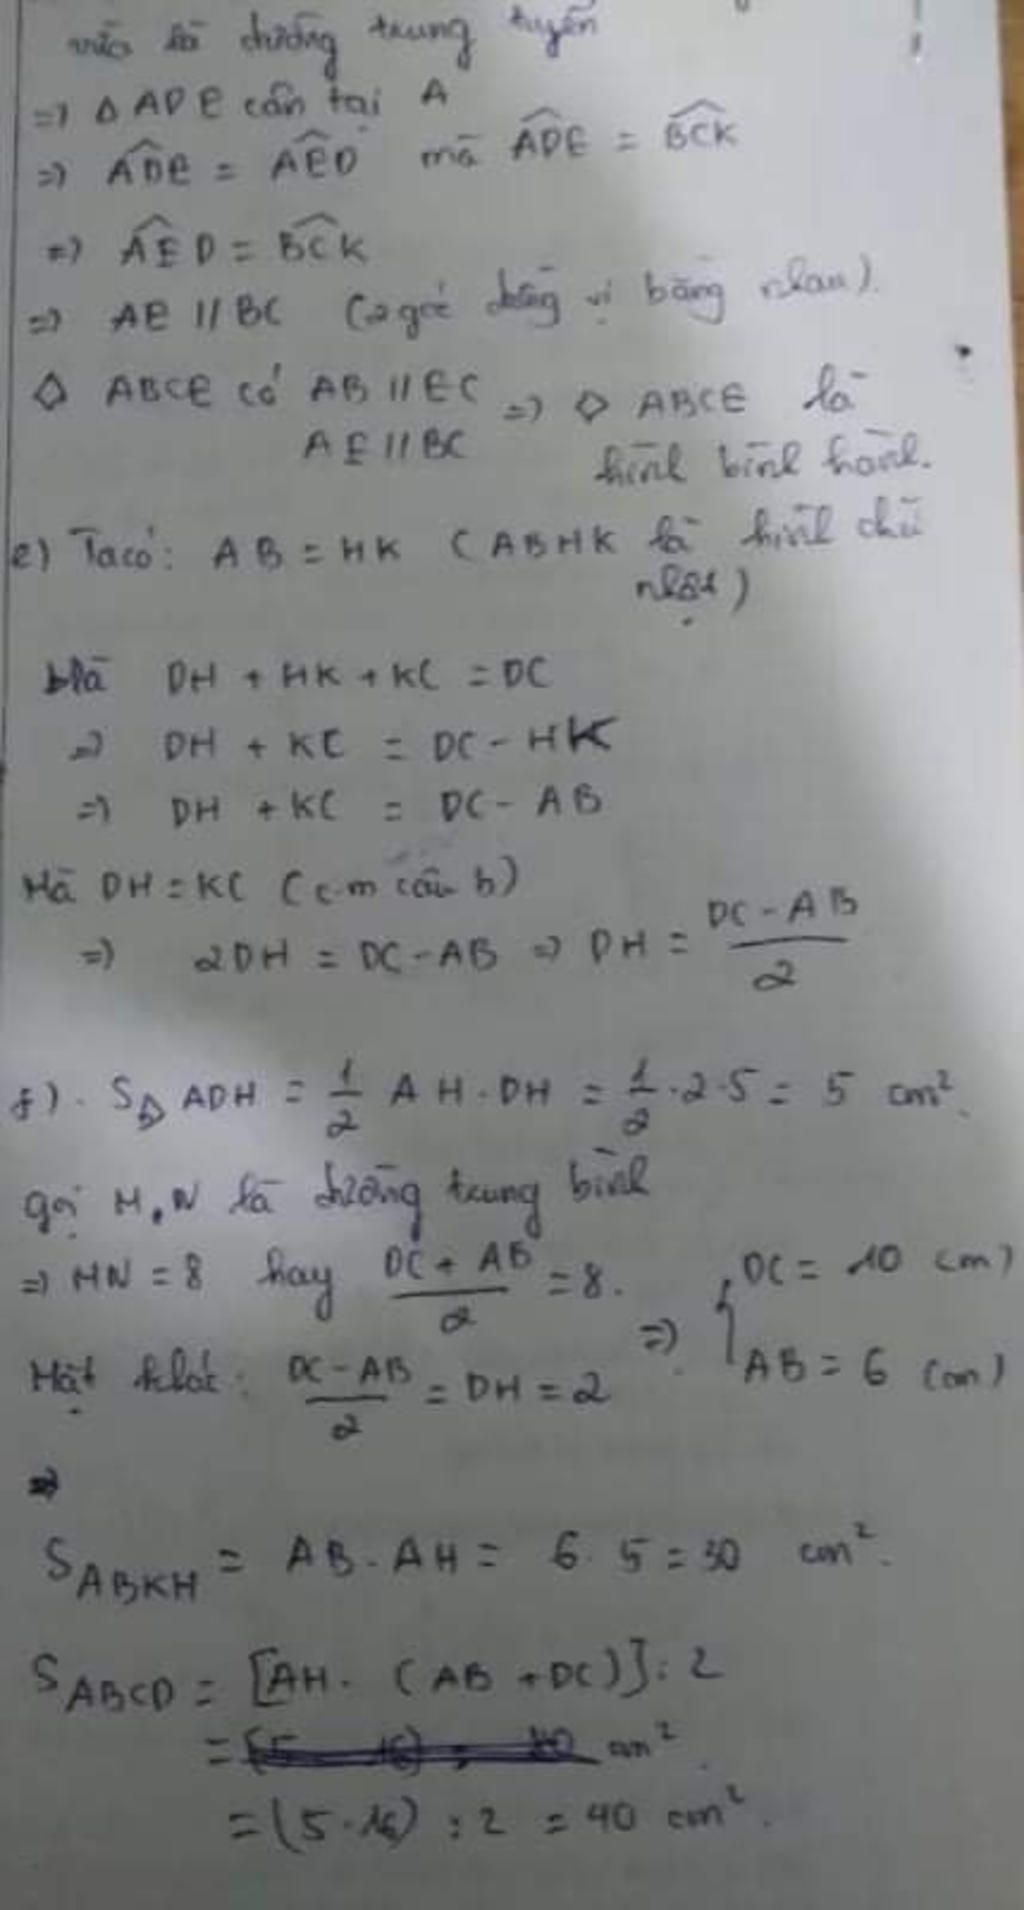 vừa là đường trung tuyến
=> Δ ADE cân tại A
=> ADE = AED mà ADE = BCK
=> AED = BCK
=> AE // BC (2 góc đồng vị bằng nhau).
◇ ABCE có AB // EC => ◇ ABCE là
AE // BC hình bình hành.
e) Ta có: AB = HK (ABHK là hình chữ
nhật)
Mà DH + HK + KC = DC
=> DH + KC = DC - HK
=> DH + KC = DC - AB
Mà DH = KC (c.m câu b)
=> 2DH = DC - AB => DH = (DC - AB)/2
f). SΔ ADH = 1/2 AH . DH = 1/2 . 2 . 5 = 5 cm².
gọi M, N là đường trung bình
=> MN = 8 hay (DC + AB)/2 = 8.
Mặt khác: (DC - AB)/2 = DH = 2 => { DC = 10 (cm)
AB = 6 (cm)
=>
S ABKH = AB . AH = 6 . 5 = 30 cm².
S ABCD = [AH . (AB + DC)] : 2
= cm².
= (5 . 16) : 2 = 40 cm².